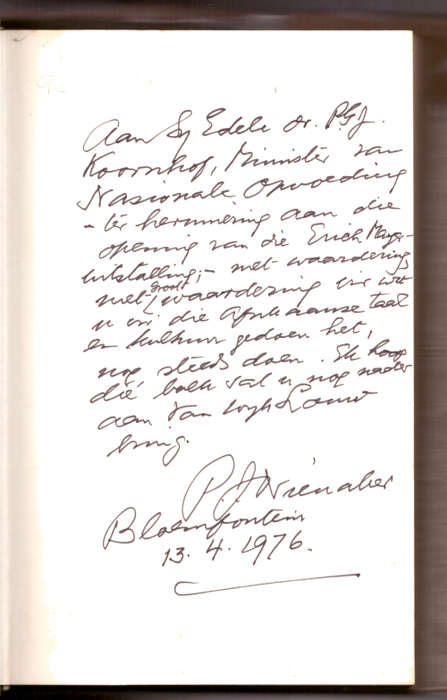 Aan Sy Edele dr. P.G.J.
Koornhof, Minister van
Nasionale Opvoeding
- ter herinnering aan die
opening van die Erich Mayer-
uitstalling, - met waardering,
met groot waardering vir wat
u vir die Afrikaanse taal
en kultuur gedoen het,
nog steeds doen. Ek hoop
die boek sal u nog nader
aan Van Wyk Louw
bring.
P.J. Nienaber
Bloemfontein
13.4.1976.